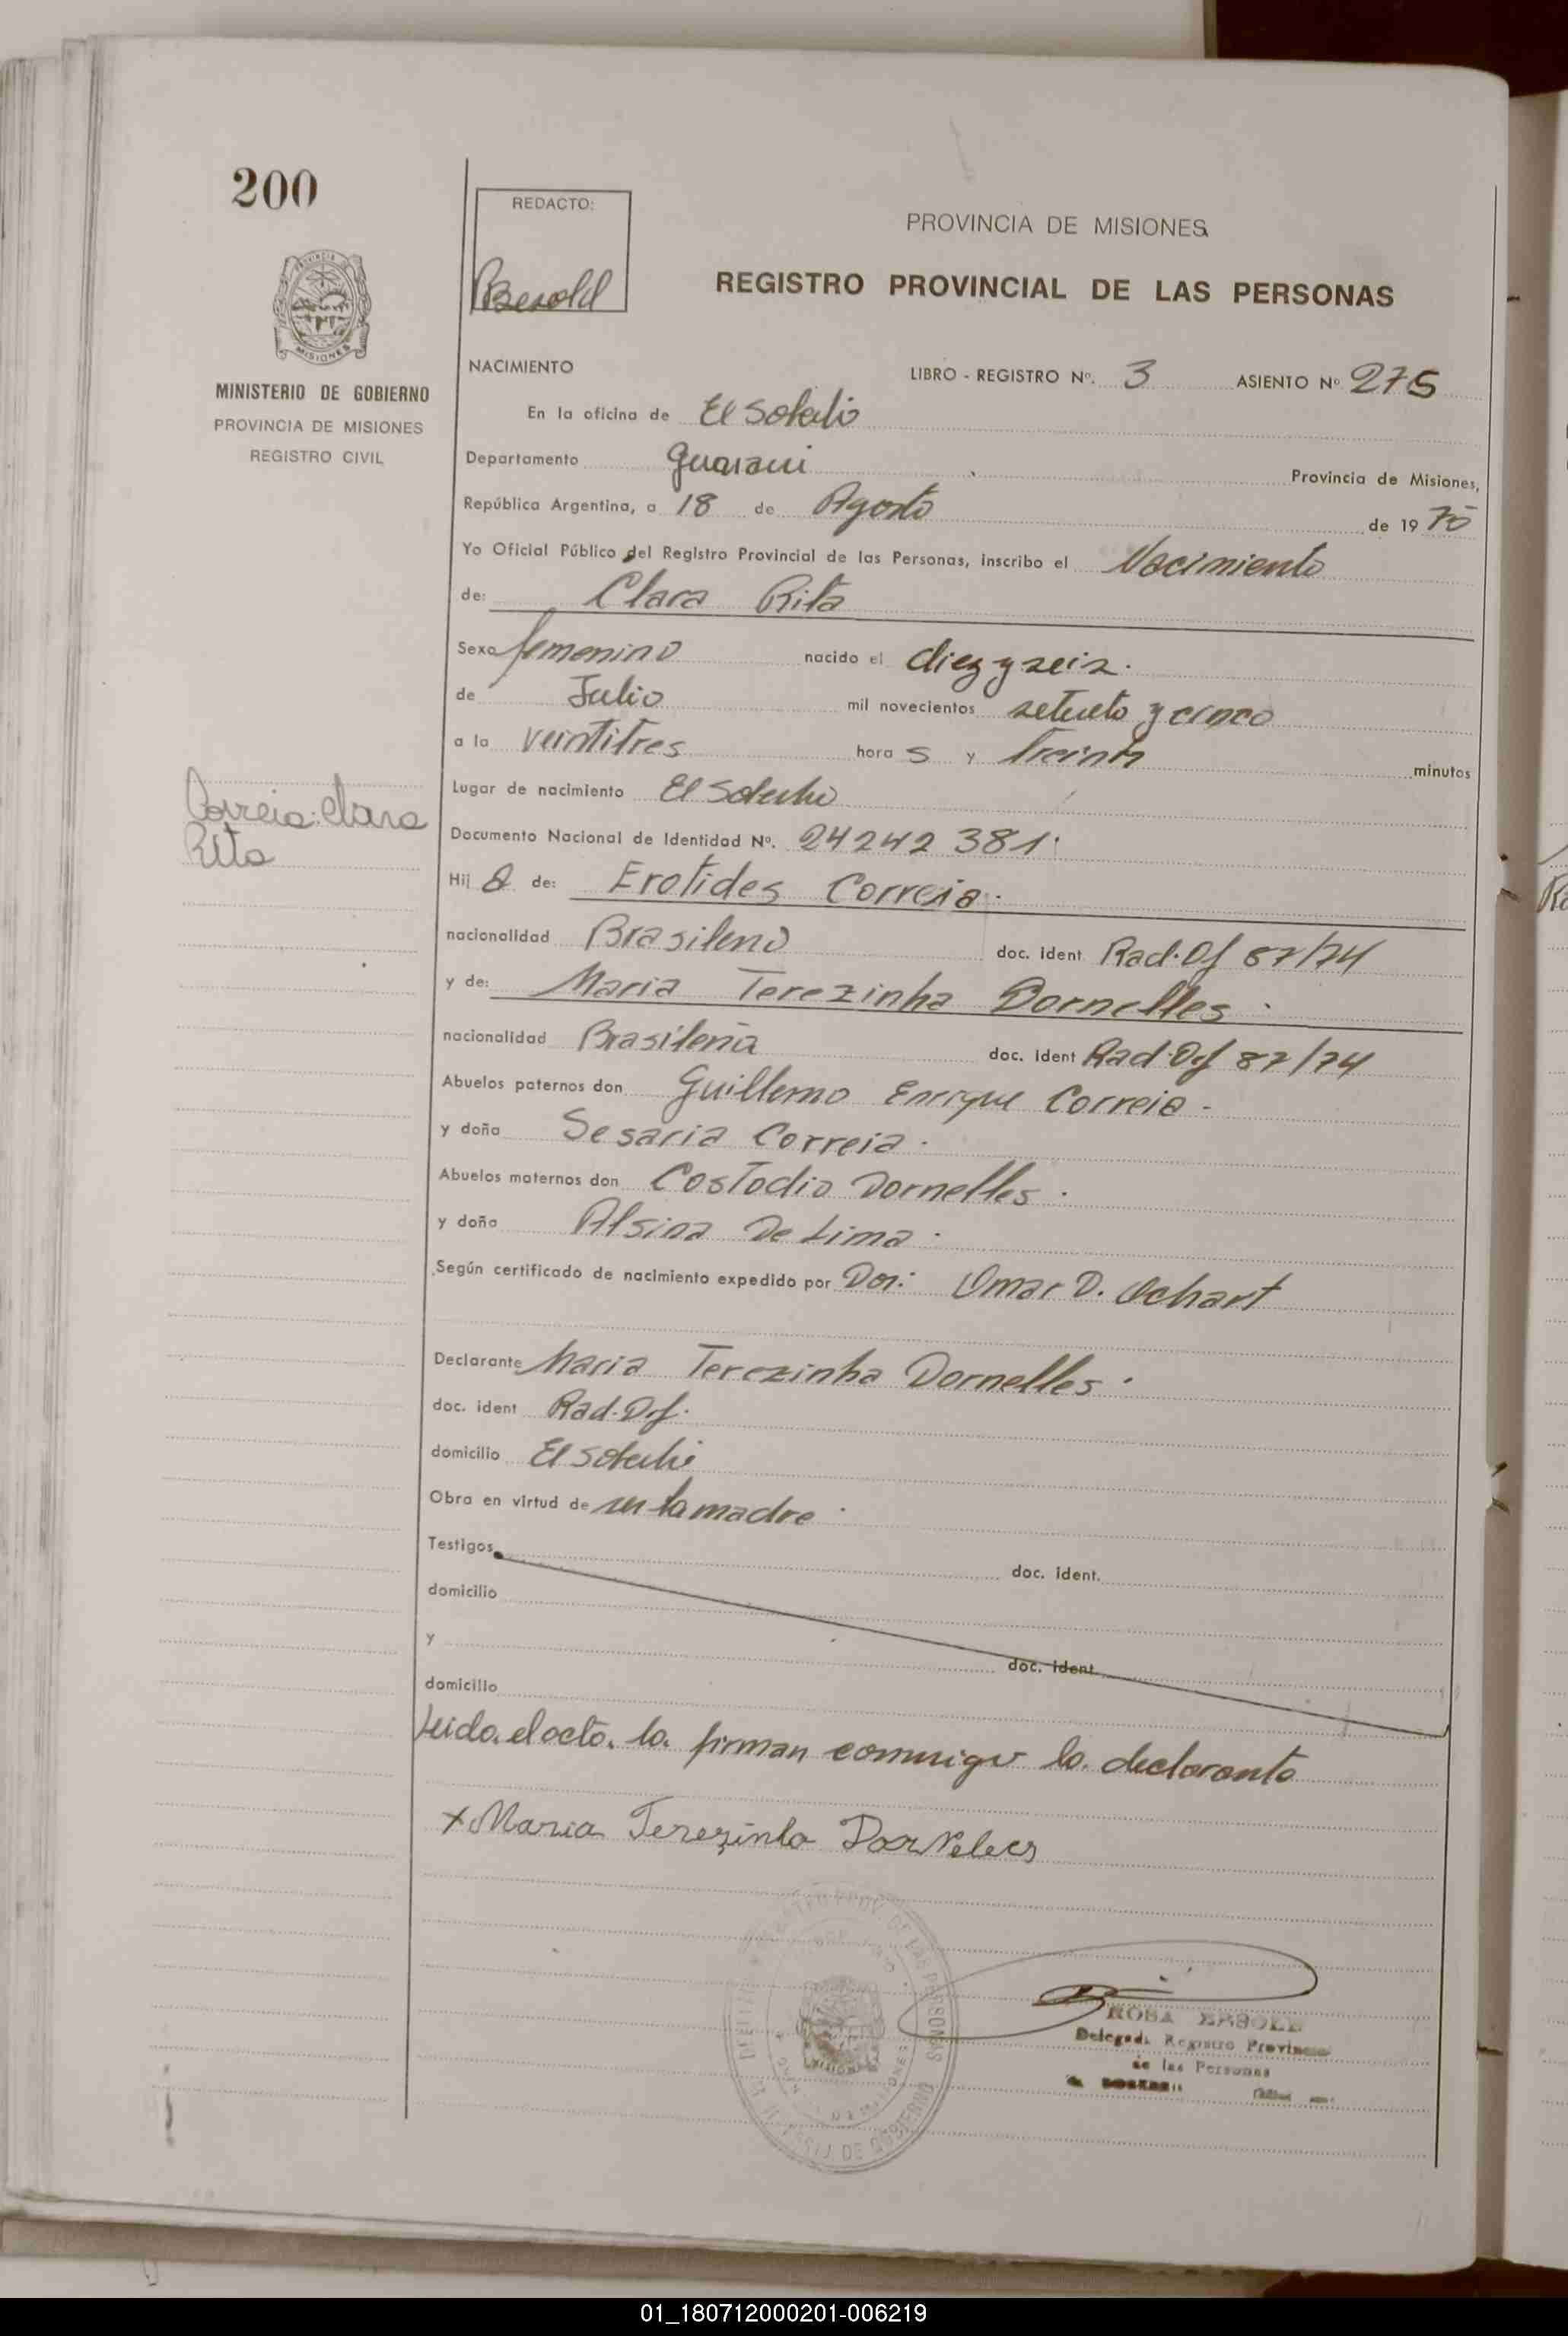 200
REDACTO:
PROVINCIA DE MISIONES
REGISTRO PROVINCIAL DE LAS PERSONAS
MISIONES
MINISTERIO DE GOBIERNO
PROVINCIA DE MISIONES
REGISTRO CIVIL
NACIMIENTO LIBRO - REGISTRO Nº. 3 ASIENTO Nº 275
En la oficina de El Soberbio
Departamento Guarani Provincia de Misiones,
República Argentina, a 18 de Agosto de 19 75
Yo Oficial Público del Registro Provincial de las Personas, inscribo el Nacimiento
de: Clara Rita
Sexo femenino nacido el diez y seis.
de Julio mil novecientos setenta y cinco
a la veintitres hora s y treinta minutos
Lugar de nacimiento El Soberbio
Correia: Clara
Rita
Documento Nacional de Identidad Nº. 24242 381.
Hij a de: Erotides Correia.
nacionalidad Brasileno doc. ident Rad. Df 87/74
y de: Maria Terezinha Dornelles.
nacionalidad Brasileña doc. ident Rad. Df 87/74
Abuelos paternos don Guillermo Enrique Correia -
y doña Sesaria Correia.
Abuelos maternos don Costodio Dornelles.
y doña Alsina De Lima.
Según certificado de nacimiento expedido por Dor: Omar D. Ochart
Declarante Maria Terezinha Dornelles.
doc. ident Rad. Df.
domicilio El Soberbio
Obra en virtud de ser la madre.
Testigos doc. ident.
domicilio
y doc. ident
domicilio
Leida el acta. la firman conmigo la declarante
x Maria Terezinha Dornelles
DE LAS PERSONAS
ROSA
Delegada Registro Provincial
de las Personas
01_180712000201-006219